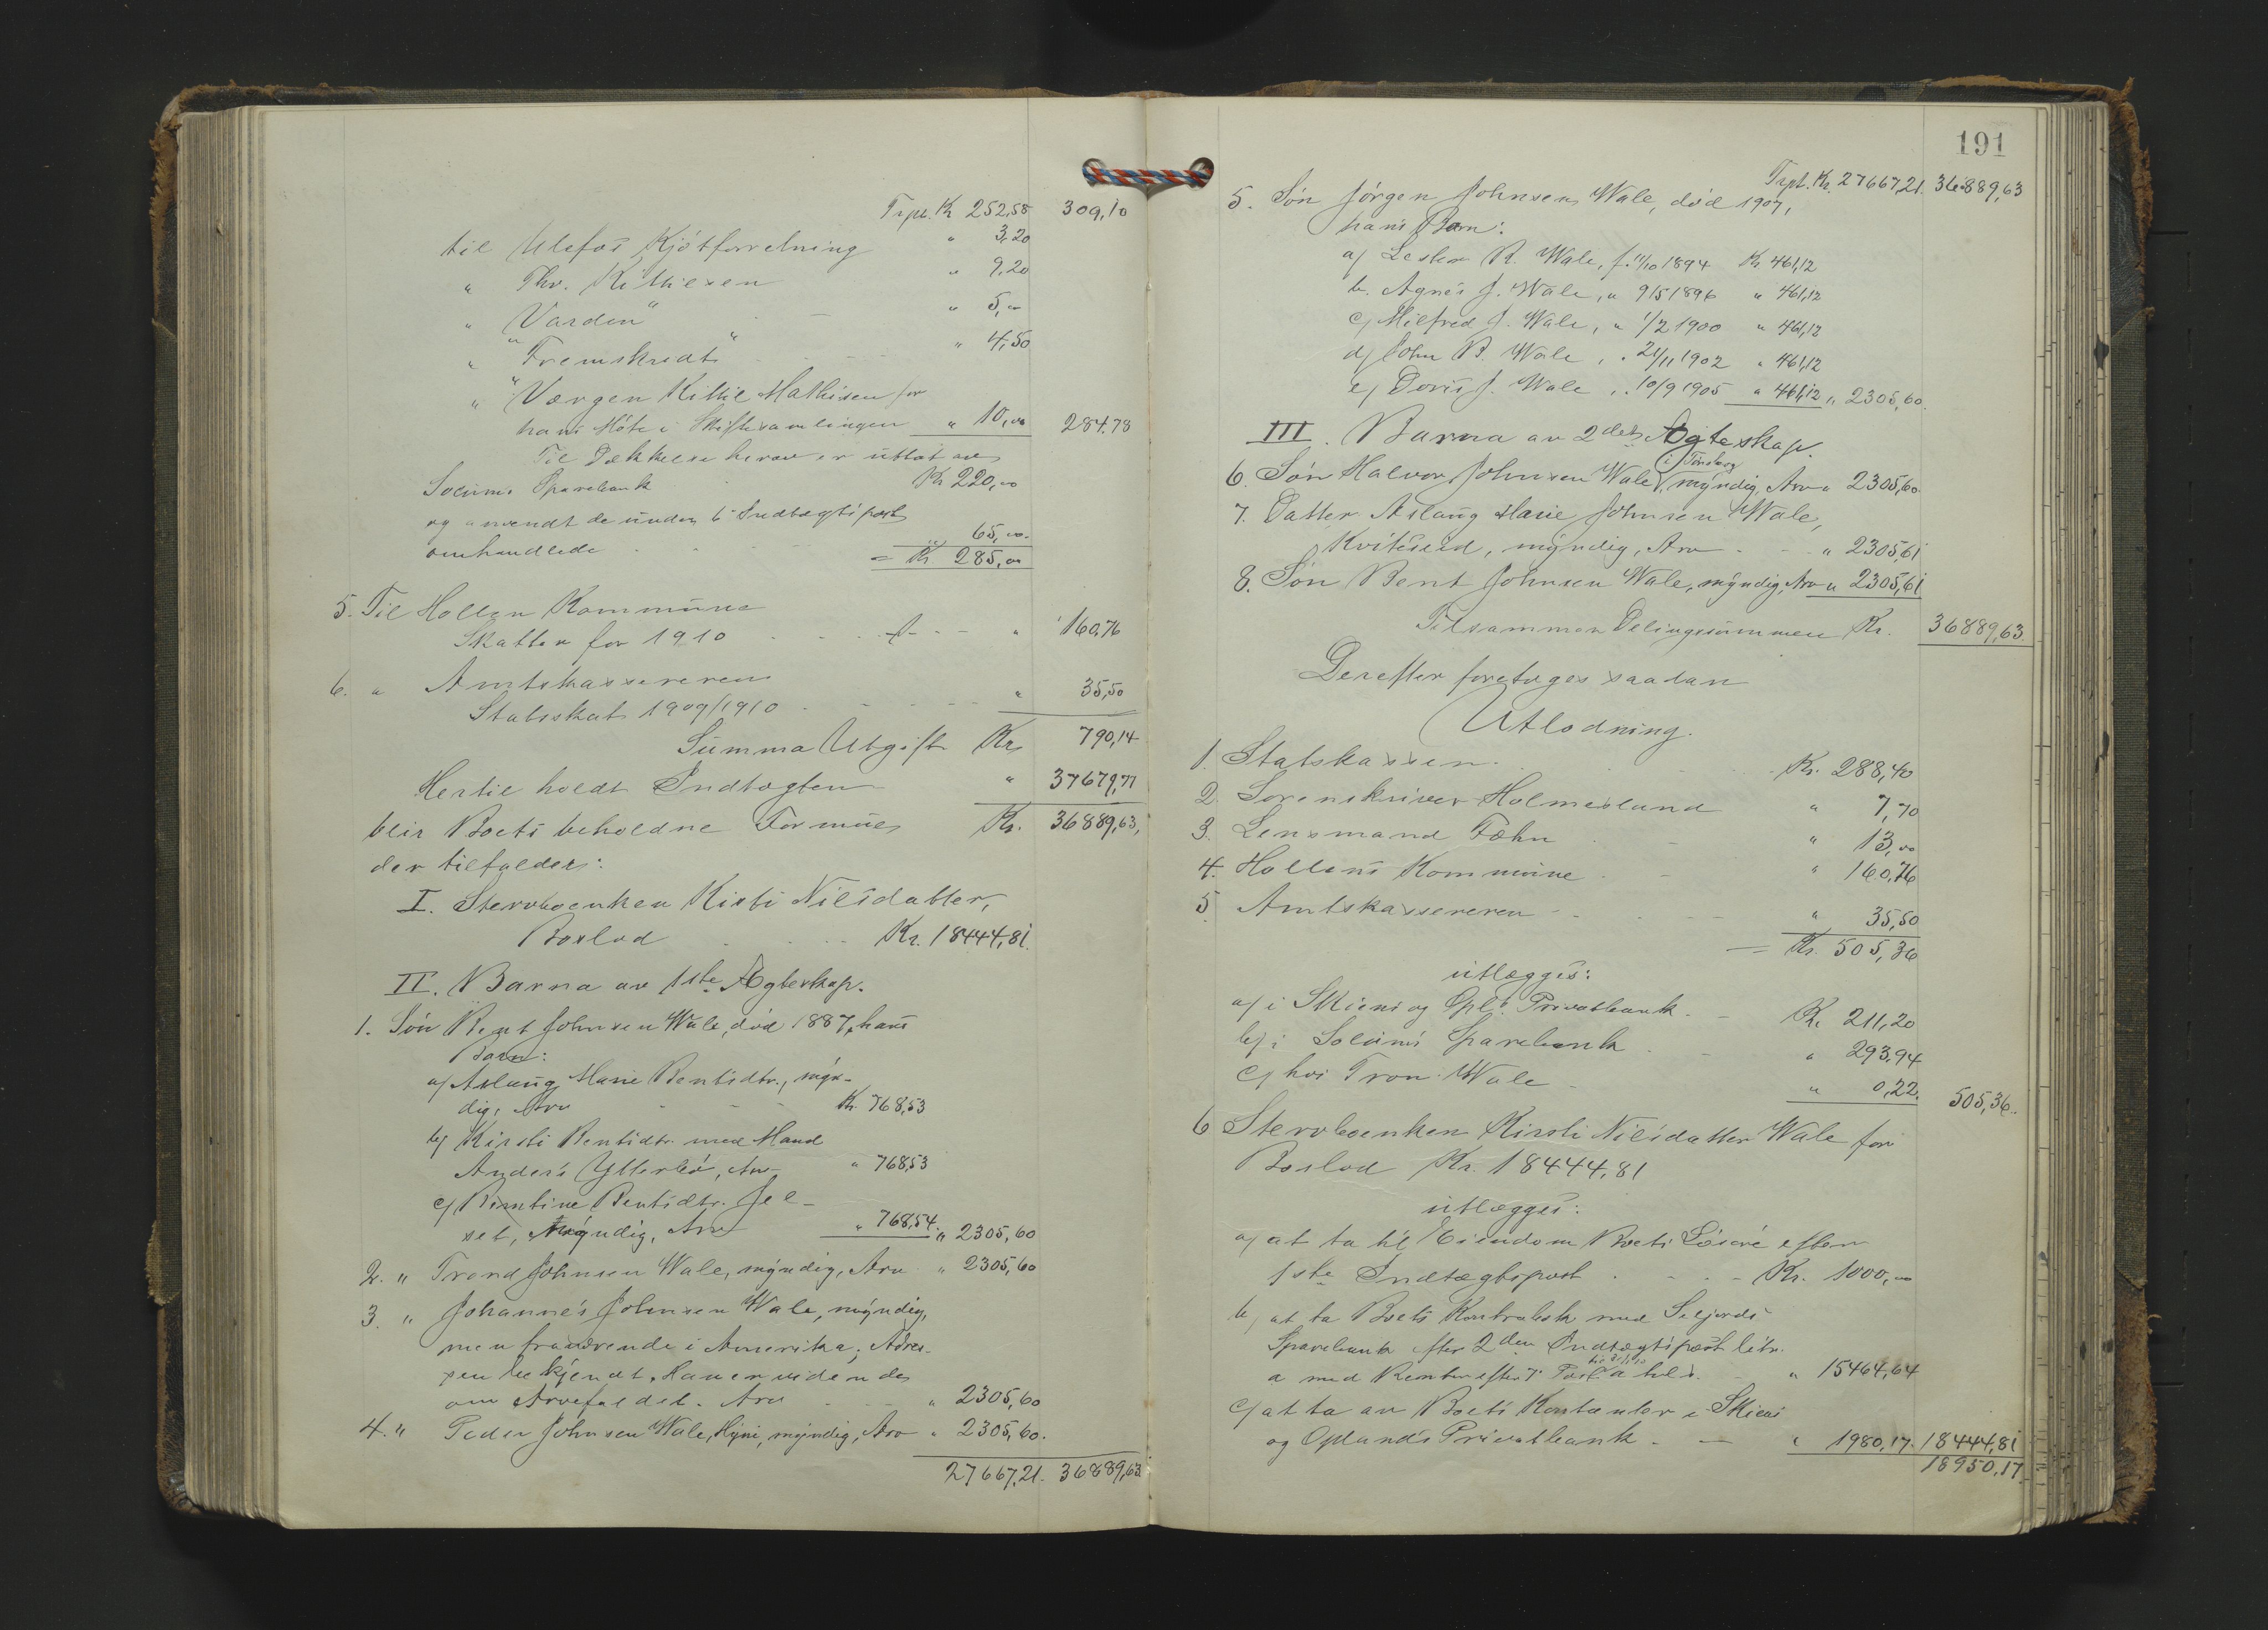 Trpt. Kr 252,58 309,10
til Ulefos Kjøtforretning " 3,20
" Thv. Kittilsen " 9,20
" "Varden" " 5,00
" "Fremskridt" " 4,50
" Værgen Kittil Mathisen for
hans Møte i Skiftesamlingen " 10,00 284.78
Til Dækkelse herav er uttat av
Solums Sparebank Kr 220,00
og anvendt de under 6 Indtægtspost
omhandlede " 65,00.
= Kr 285,00
5. Til Hollen Kommune
Skatten for 1910 " 160,76
6. " Amtskassereren
Statsskat 1909/1910 " 35,50
Summa Utgift Kr 790,14
Hertil holdt Indtægten " 37679,77
blir Boets beholdne Formue Kr. 36889,63,
der tilfalder:
I. Stervboenken Kirsti Nilsdatter,
Boslod Kr. 18444,81.
II. Barna av 1ste Ægteskap.
1. Søn Bent Johnsen Wale, død 1887, hans
Barn:
a) Aslaug Marie Bentsdtr., myn-
dig, Arv Kr. 768,53
b) Kirsti Bentsdtr. med Mand
Anders Ytterbø, Arv " 768,53
c) Bentine Bentsdtr. Jel-
set, Myndig, Arv " 768,54. " 2305,60
2. " Trond Johnsen Wale, myndig, Arv " 2305,60
3. " Johannes Johnsen Wale, myndig,
men fraværende i Amerika; Adres-
sen bekjendt. Han er vidende
om Arvefaldet. Arv " 2305,60
4. " Peder Johnsen Wale, myndig, Arv " 2305,60.
27667,21. 36889,63.
191
Trpt. Kr. 27667,21. 36889,63
5. Søn Jørgen Johnsen Wale, død 1907,
hans Barn:
a) Lester R. Wale, f. 11/10 1894 Kr 461,12
b. Agnes J. Wale, " 9/5 1896 " 461,12
c) Milfred J. Wale, " 1/2 1900 " 461,12
d) John B. Wale, " 21/11 1902 " 461,12
e) Doris J. Wale, " 10/9 1905 " 461,12 " 2305,60.
III. Barna av 2det Ægteskap.
6. Søn Halvor Johnsen Wale, i Tønsberg myndig, Arv " 2305,60.
7. Datter Aslaug Marie Johnsen Wale,
Kviteseid, myndig, Arv " 2305,61
8. Søn Bent Johnsen Wale, myndig, Arv " 2305,61
Tilsammen Delingssummen Kr. 36889,63.
Derefter foretages saadan
Utlodning.
1. Statskassen Kr. 288,40
2. Sorenskriver Holmesland " 7,70
3. Lensmand Fæhn " 13,00
4. Hollens Kommune " 160,76
5. Amtskassereren " 35,50
= Kr. 505,36
utlægges:
a) i Skiens og Opl. Privatbank Kr. 211,20
b) i Solums Sparebank " 293,94
c) hos Tron Wale " 0,22. 505,36.
6 Stervboenken Kirsti Nilsdatter Wale for
Boslod Kr. 18444,81
utlægges:
a) at ta til Eiendom Boets Løsøre efter
1ste Indtægtspost Kr. 1000,00
b) at ta Boets Kontrabok med Seljords
Sparebank efter 2den Indtægtspost litr.
a med Renter efter 7. Post a " 15464,64
c) at ta av Boets Kontanter i Skiens
og Oplands Privatbank " 1980,17. 18444,81
18950,17